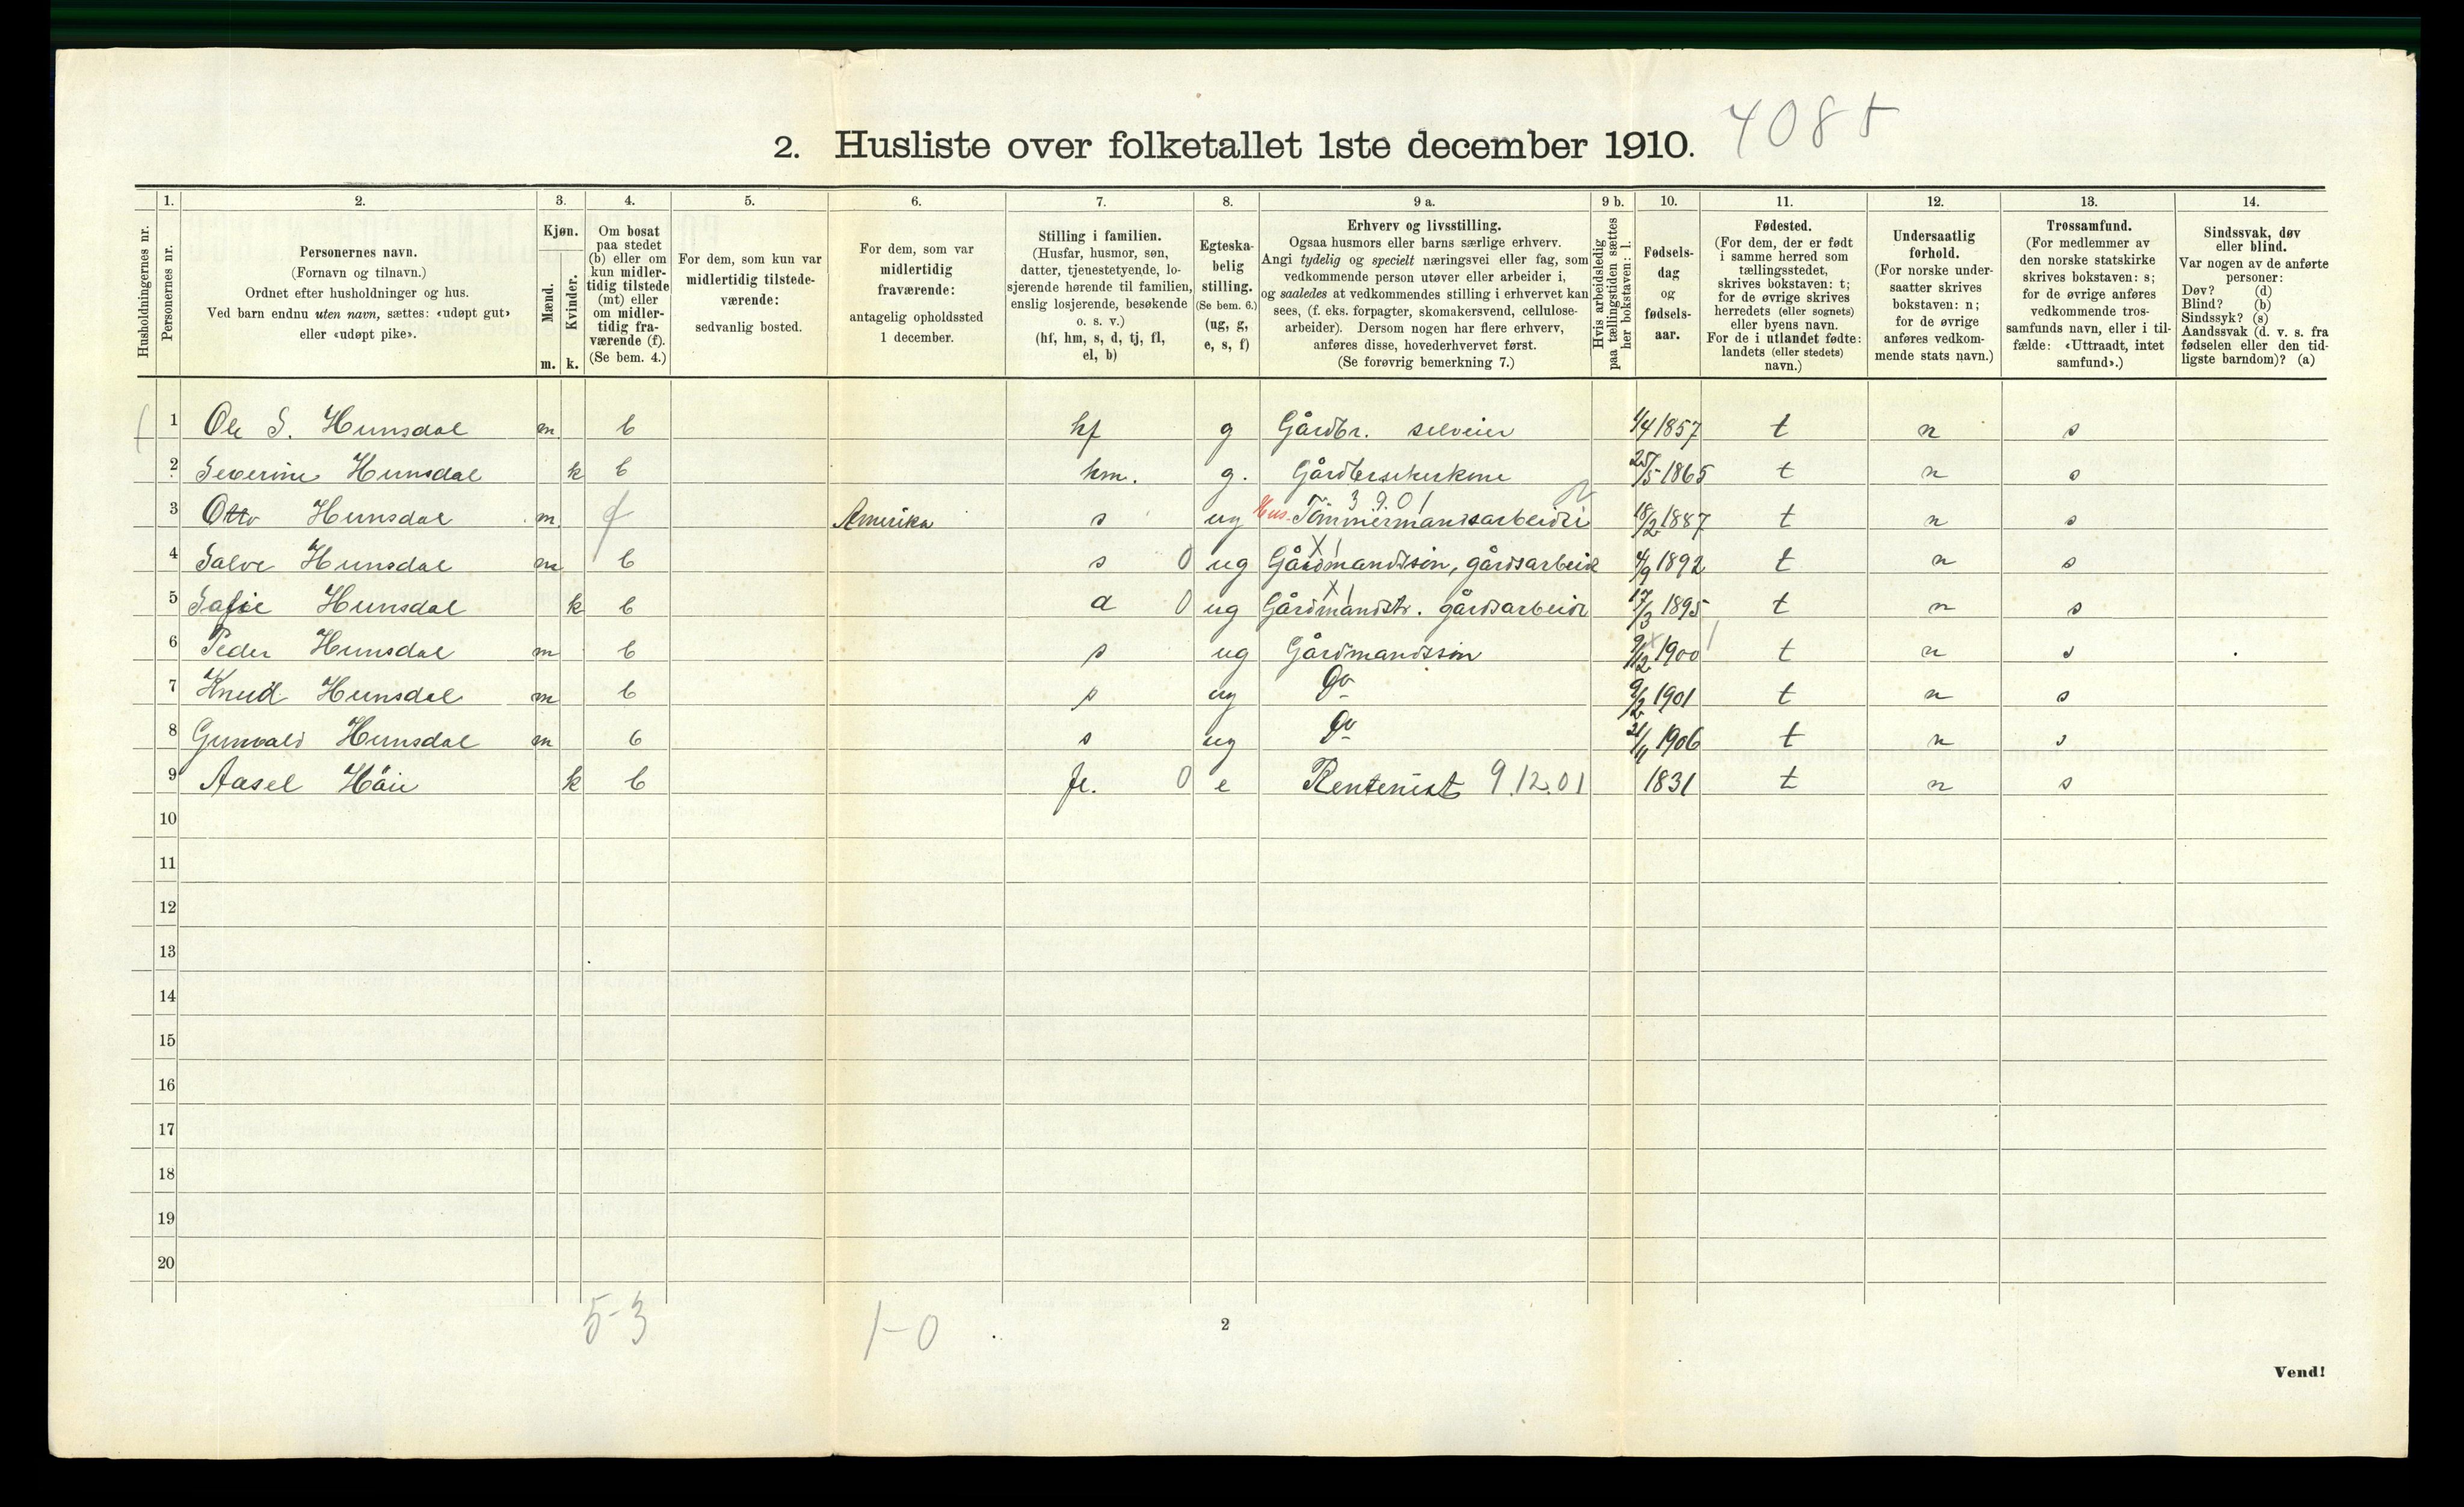 4085
2. Husliste over folketallet 1ste december 1910.
Husholdningernes nr.
1.
Personernes nr.
2.
Personernes navn.
(Fornavn og tilnavn.)
Ordnet efter husholdninger og hus.
Ved barn endnu uten navn, sættes: «udøpt gut»
eller «udøpt pike».
3.
Kjøn.
Mænd.
Kvinder.
m. k.
4.
Om bosat
paa stedet
(b) eller om
kun midler-
tidig tilstede
(mt) eller
om midler-
tidig fra-
værende (f).
(Se bem. 4.)
5.
For dem, som kun var
midlertidig tilstede-
værende:
sedvanlig bosted.
6.
For dem, som var
midlertidig
fraværende:
antagelig opholdssted
1 december.
7.
Stilling i familien.
(Husfar, husmor, søn,
datter, tjenestetyende, lo-
sjerende hørende til familien,
enslig losjerende, besøkende
o. s. v.)
(hf, hm, s, d, tj, fl,
el, b)
8.
Egteska-
belig
stilling.
(Se bem. 6.)
(ug, g,
e, s, f)
9 a.
Erhverv og livsstilling.
Ogsaa husmors eller barns særlige erhverv.
Angi tydelig og specielt næringsvei eller fag, som
vedkommende person utøver eller arbeider i,
og saaledes at vedkommendes stilling i erhvervet kan
sees, (f. eks. forpagter, skomakersvend, cellulose-
arbeider). Dersom nogen har flere erhverv,
anføres disse, hovederhvervet først.
(Se forøvrig bemerkning 7.)
9 b.
Hvis arbeidsledig
paa tællingstiden sættes
her bokstaven: l.
10.
Fødsels-
dag
og
fødsels-
aar.
11.
Fødested.
(For dem, der er født
i samme herred som
tællingsstedet,
skrives bokstaven: t;
for de øvrige skrives
herredets (eller sognets)
eller byens navn.
For de i utlandet fødte:
landets (eller stedets)
navn.)
12.
Undersaatlig
forhold.
(For norske under-
saatter skrives
bokstaven: n;
for de øvrige
anføres vedkom-
mende stats navn.)
13.
Trossamfund.
(For medlemmer av
den norske statskirke
skrives bokstaven: s;
for de øvrige anføres
vedkommende tros-
samfunds navn, eller i til-
fælde: «Uttraadt, intet
samfund».)
14.
Sindssvak, døv
eller blind.
Var nogen av de anførte
personer:
Døv? (d)
Blind? (b)
Sindssyk? (s)
Aandssvak (d. v. s. fra
fødselen eller den tid-
ligste barndom)? (a)
1 Ole S. Hunsdal m b hf g Gårdbr. selveier 1/4 1857 t n s
2 Severine Hunsdal k b hm. g. 25/5 1865 t n s
3 9 0 1
3 Otto Hunsdal m f Amerika s ug Hus. Tömmermandsarbeide 18/2 1887 t n s
X 1
4 Salve Hunsdal m b s 0 ug Gårdmandssön, gårdsarbeide 4/9 1892 t n s
X 1
5 Safie Hunsdal k b d 0 ug Gårdmandstr. gårdsarbeide 17/3 1895 t n s
6 Peder Hunsdal m b s ug Gårdmandssön 9/12 1900 t n s
7 Knud Hunsdal m b s ug Do 9/2 1901 t n s
8 Gunvald Hunsdal m b s ug Do 21/11 1906 t n s
9 Aasel Höie k b fl. 0 e Rentenist 9.12.01 1831 t n s
10
11
12
13
14
15
16
17
18
19
20
5-3 1-0
2
Vend!